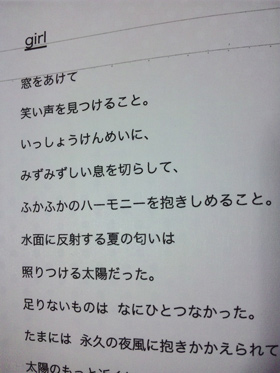 girl
窓をあけて
笑い声を見つけること。
いっしょうけんめいに、
みずみずしい息を切らして、
ふかふかのハーモニーを抱きしめること。
水面に反射する夏の匂いは
照りつける太陽だった。
足りないものは なにひとつなかった。
たまには 永久の夜風に抱きかかえられて
太陽のもっと近く